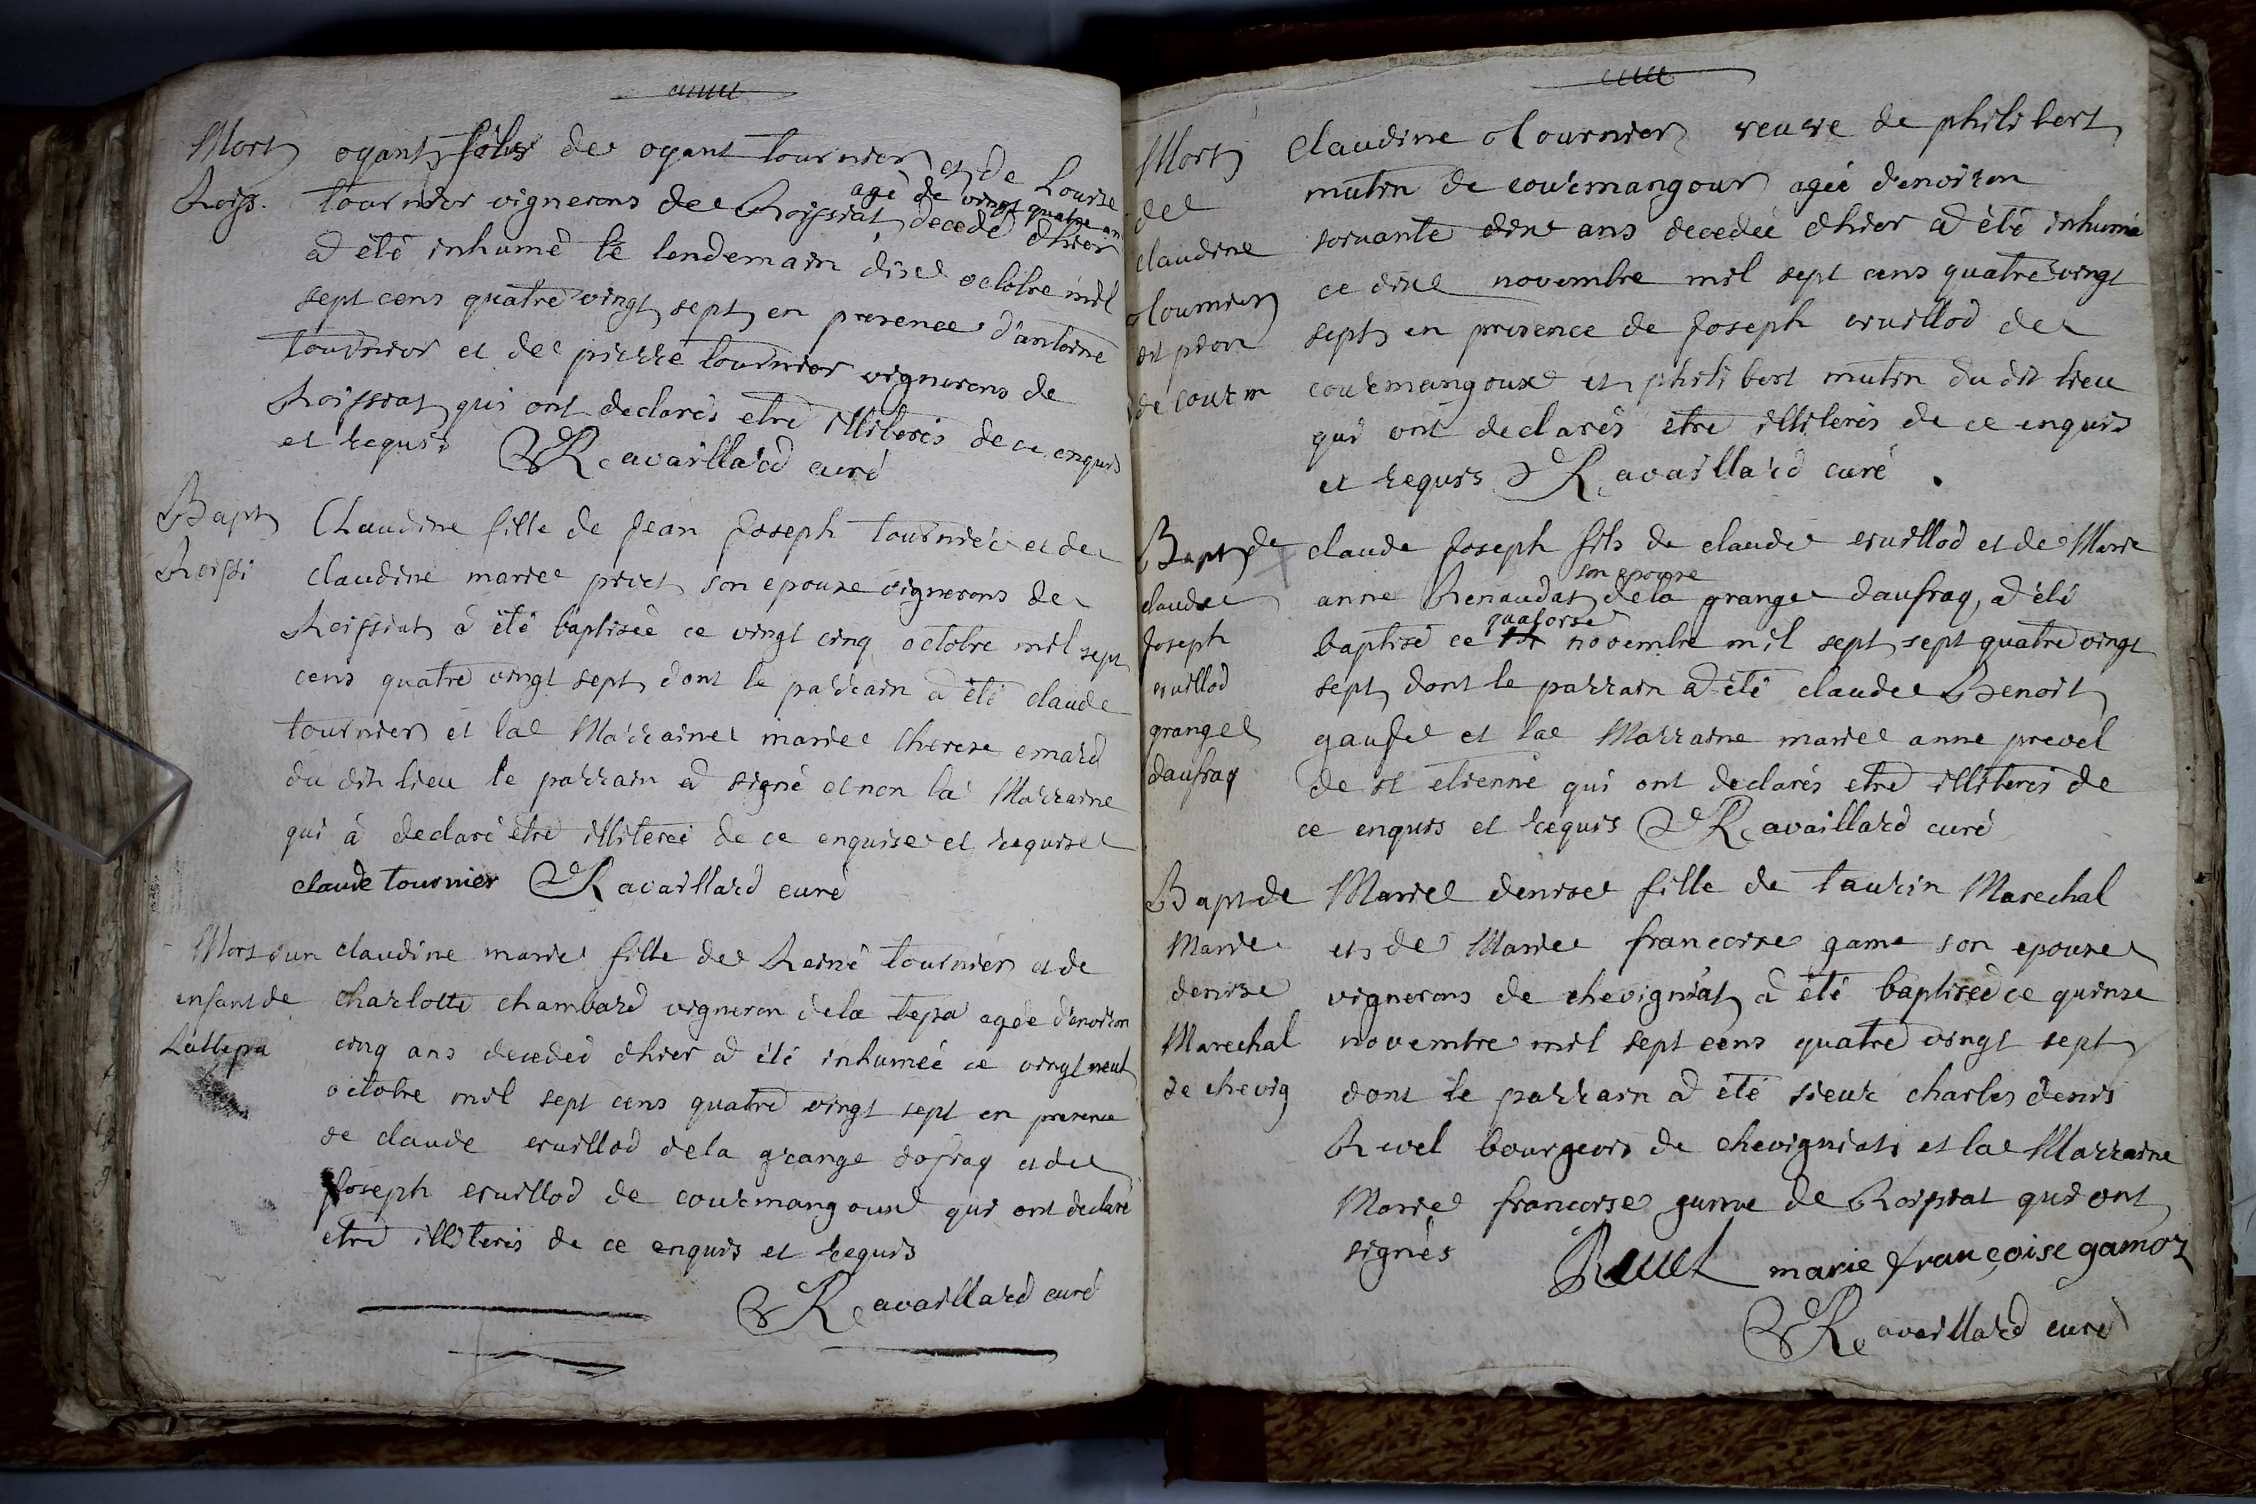 Mort
Roiss.
oyant fils de oyant tournier et de Louise
tournier vignerons de Roissiat, agé de vingt quatre an decedé d'hier
a été inhumé le lendemain dixe octobre mil
sept cens quatre vingt sept en presence d'antoine
tournier et de pierre tournier vignerons de
Roissiat qui ont declarés etre illiterés de ce enquis
et requis Ravaillard curé
Bapt
Roissi
Claudine fille de jean joseph tournier et de
claudine marie privet son epouse vignerons de
Roissiat à été baptisée ce vingt cinq octobre mil sept
cens quatre vingt sept dont le parrain a été claude
tournier et la Marraine marie therese emard
du dit lieu le parrain a signé et non la Marraine
qui à declaré etre illiterée de ce enquise et requise
claude tournier Ravaillard curé
Mort d'un
enfant de
Lattepa
claudine marie fille de Reiné tournier et de
charlotte chambard vigneron dela tepa agée d'environ
cinq ans decedée d'hier a été inhumée ce vingt neuf
octobre mil sept cens quatre vingt sept en presence
de claude eruillod dela grange dofraq et de
joseph eruillod de courmangoux qui ont declaré
etre illiterés de ce enquis et requis
Ravaillard curé
Mort
de
claudine
olournier
dit pion
de courm
Claudine olournier veuve de philibert
mutin de courmangoux agée d'environ
soixante dixe ans decedée d'hier a été inhumé
ce dixe novembre mil sept cens quatre vingt
sept en presence de joseph eruillod de
courmangoux et philibert mutin du dit lieu
qui ont declarés etre illiterés de ce enquis
et requis Ravaillard curé
Bapt de
claude
joseph
eruillod
grange
daufraq
claude joseph fils de claude eruillod et de Marie
anne Renaudat son epouse dela grange daufraq, a été
baptisé ce quatorse novembre mil sept sept quatre vingt
sept dont le parrain a été claude Benoit
gauge et la Marraine marie anne prevel
de st etienne qui ont declarés etre illiterés de
ce enquis et requis Ravaillard curé
Bapt de
Marie
denise
Marechal
de chevig
Marie denise fille de taurin Marechal
et de Marie francoise game son epouse
vignerons de chevigniat a été baptisée ce quinse
novembre mil sept cens quatre vingt sept
dont le parrain a été sieur charles denis
Revel bourgeois de chevigniat et la Marraine
Marie francoise game de Roissiat qui ont
signés
Revel marie françoise gamoz
Ravaillard curé